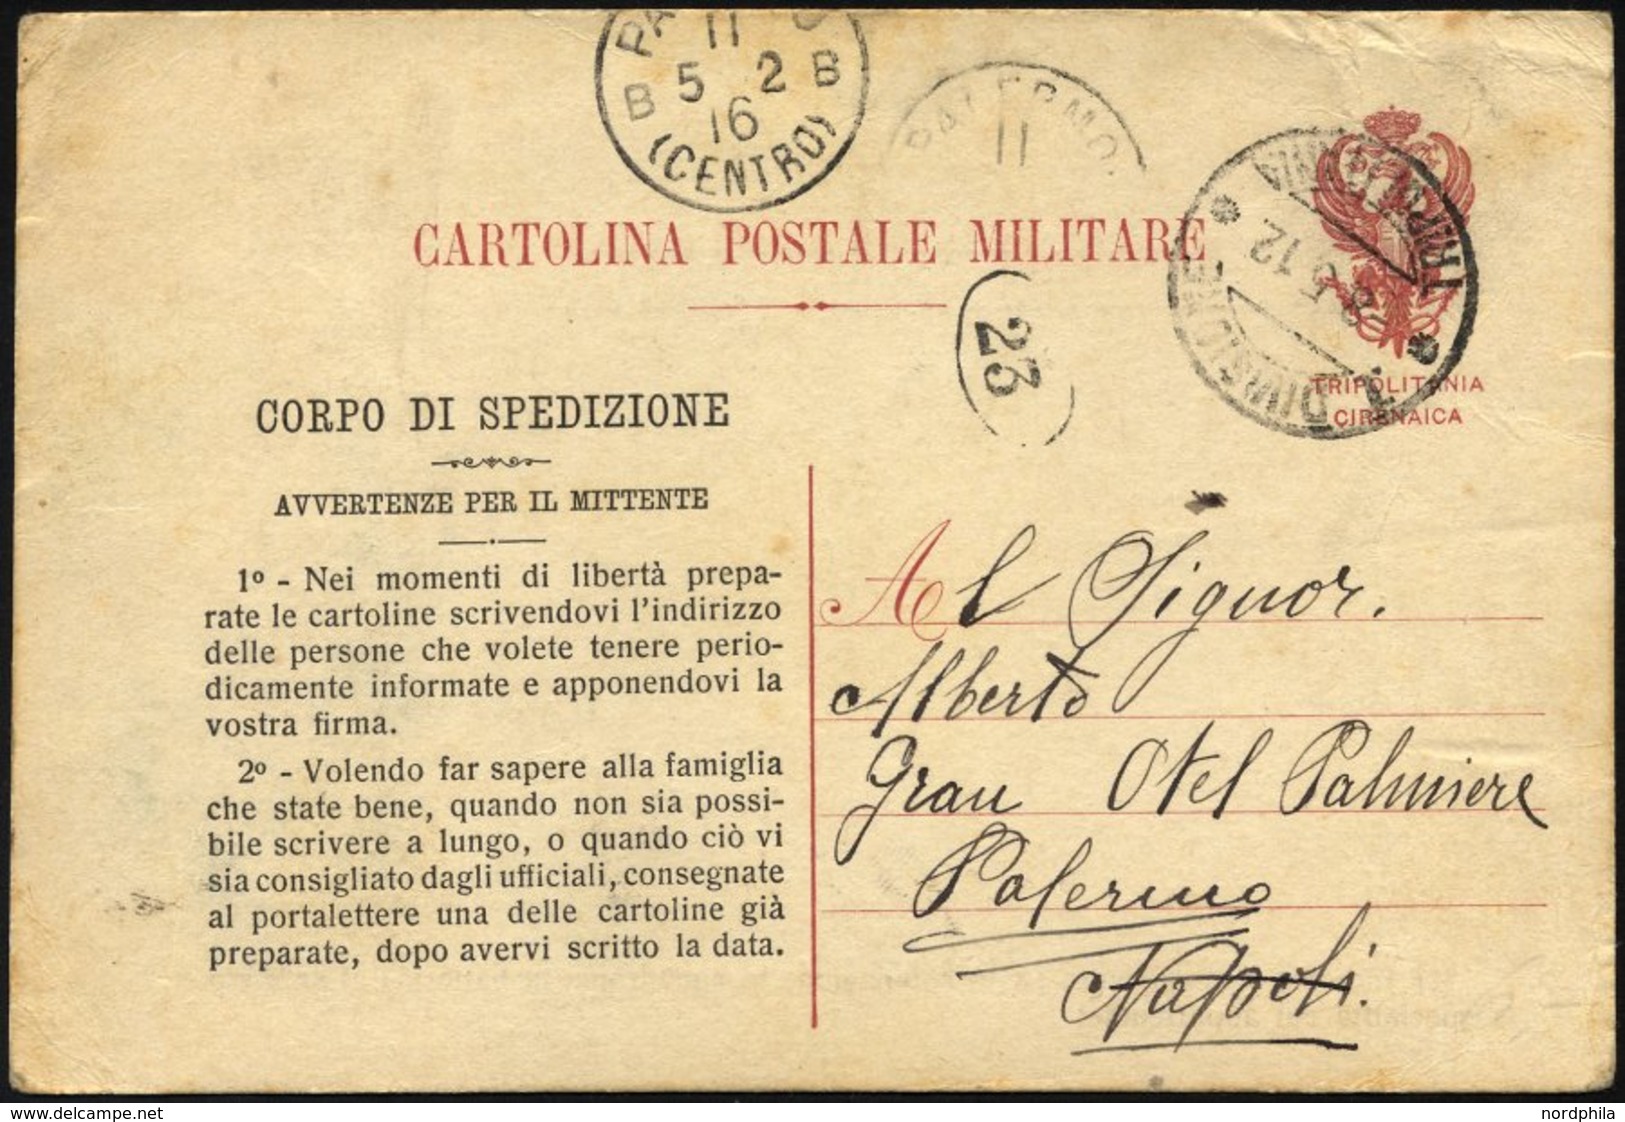 11
5 2
B B
16
(CENTRO)
PALERMO
11
CARTOLINA POSTALE MILITARE
TRIPOLITANIA
8 5 12
DIVISIONE
TRIPOLITANIA
CIRENAICA
23
CORPO DI SPEDIZIONE
AVVERTENZE PER IL MITTENTE
1º - Nei momenti di libertà prepa-
rate le cartoline scrivendovi l'indirizzo
delle persone che volete tenere perio-
dicamente informate e apponendovi la
vostra firma.
2º - Volendo far sapere alla famiglia
che state bene, quando non sia possi-
bile scrivere a lungo, o quando ciò vi
sia consigliato dagli ufficiali, consegnate
al portalettere una delle cartoline già
preparate, dopo avervi scritto la data.
Al Signor.
Alberto
Gran Otel Palmiere
Palermo
Napoli.
nordphila | delcampe.net